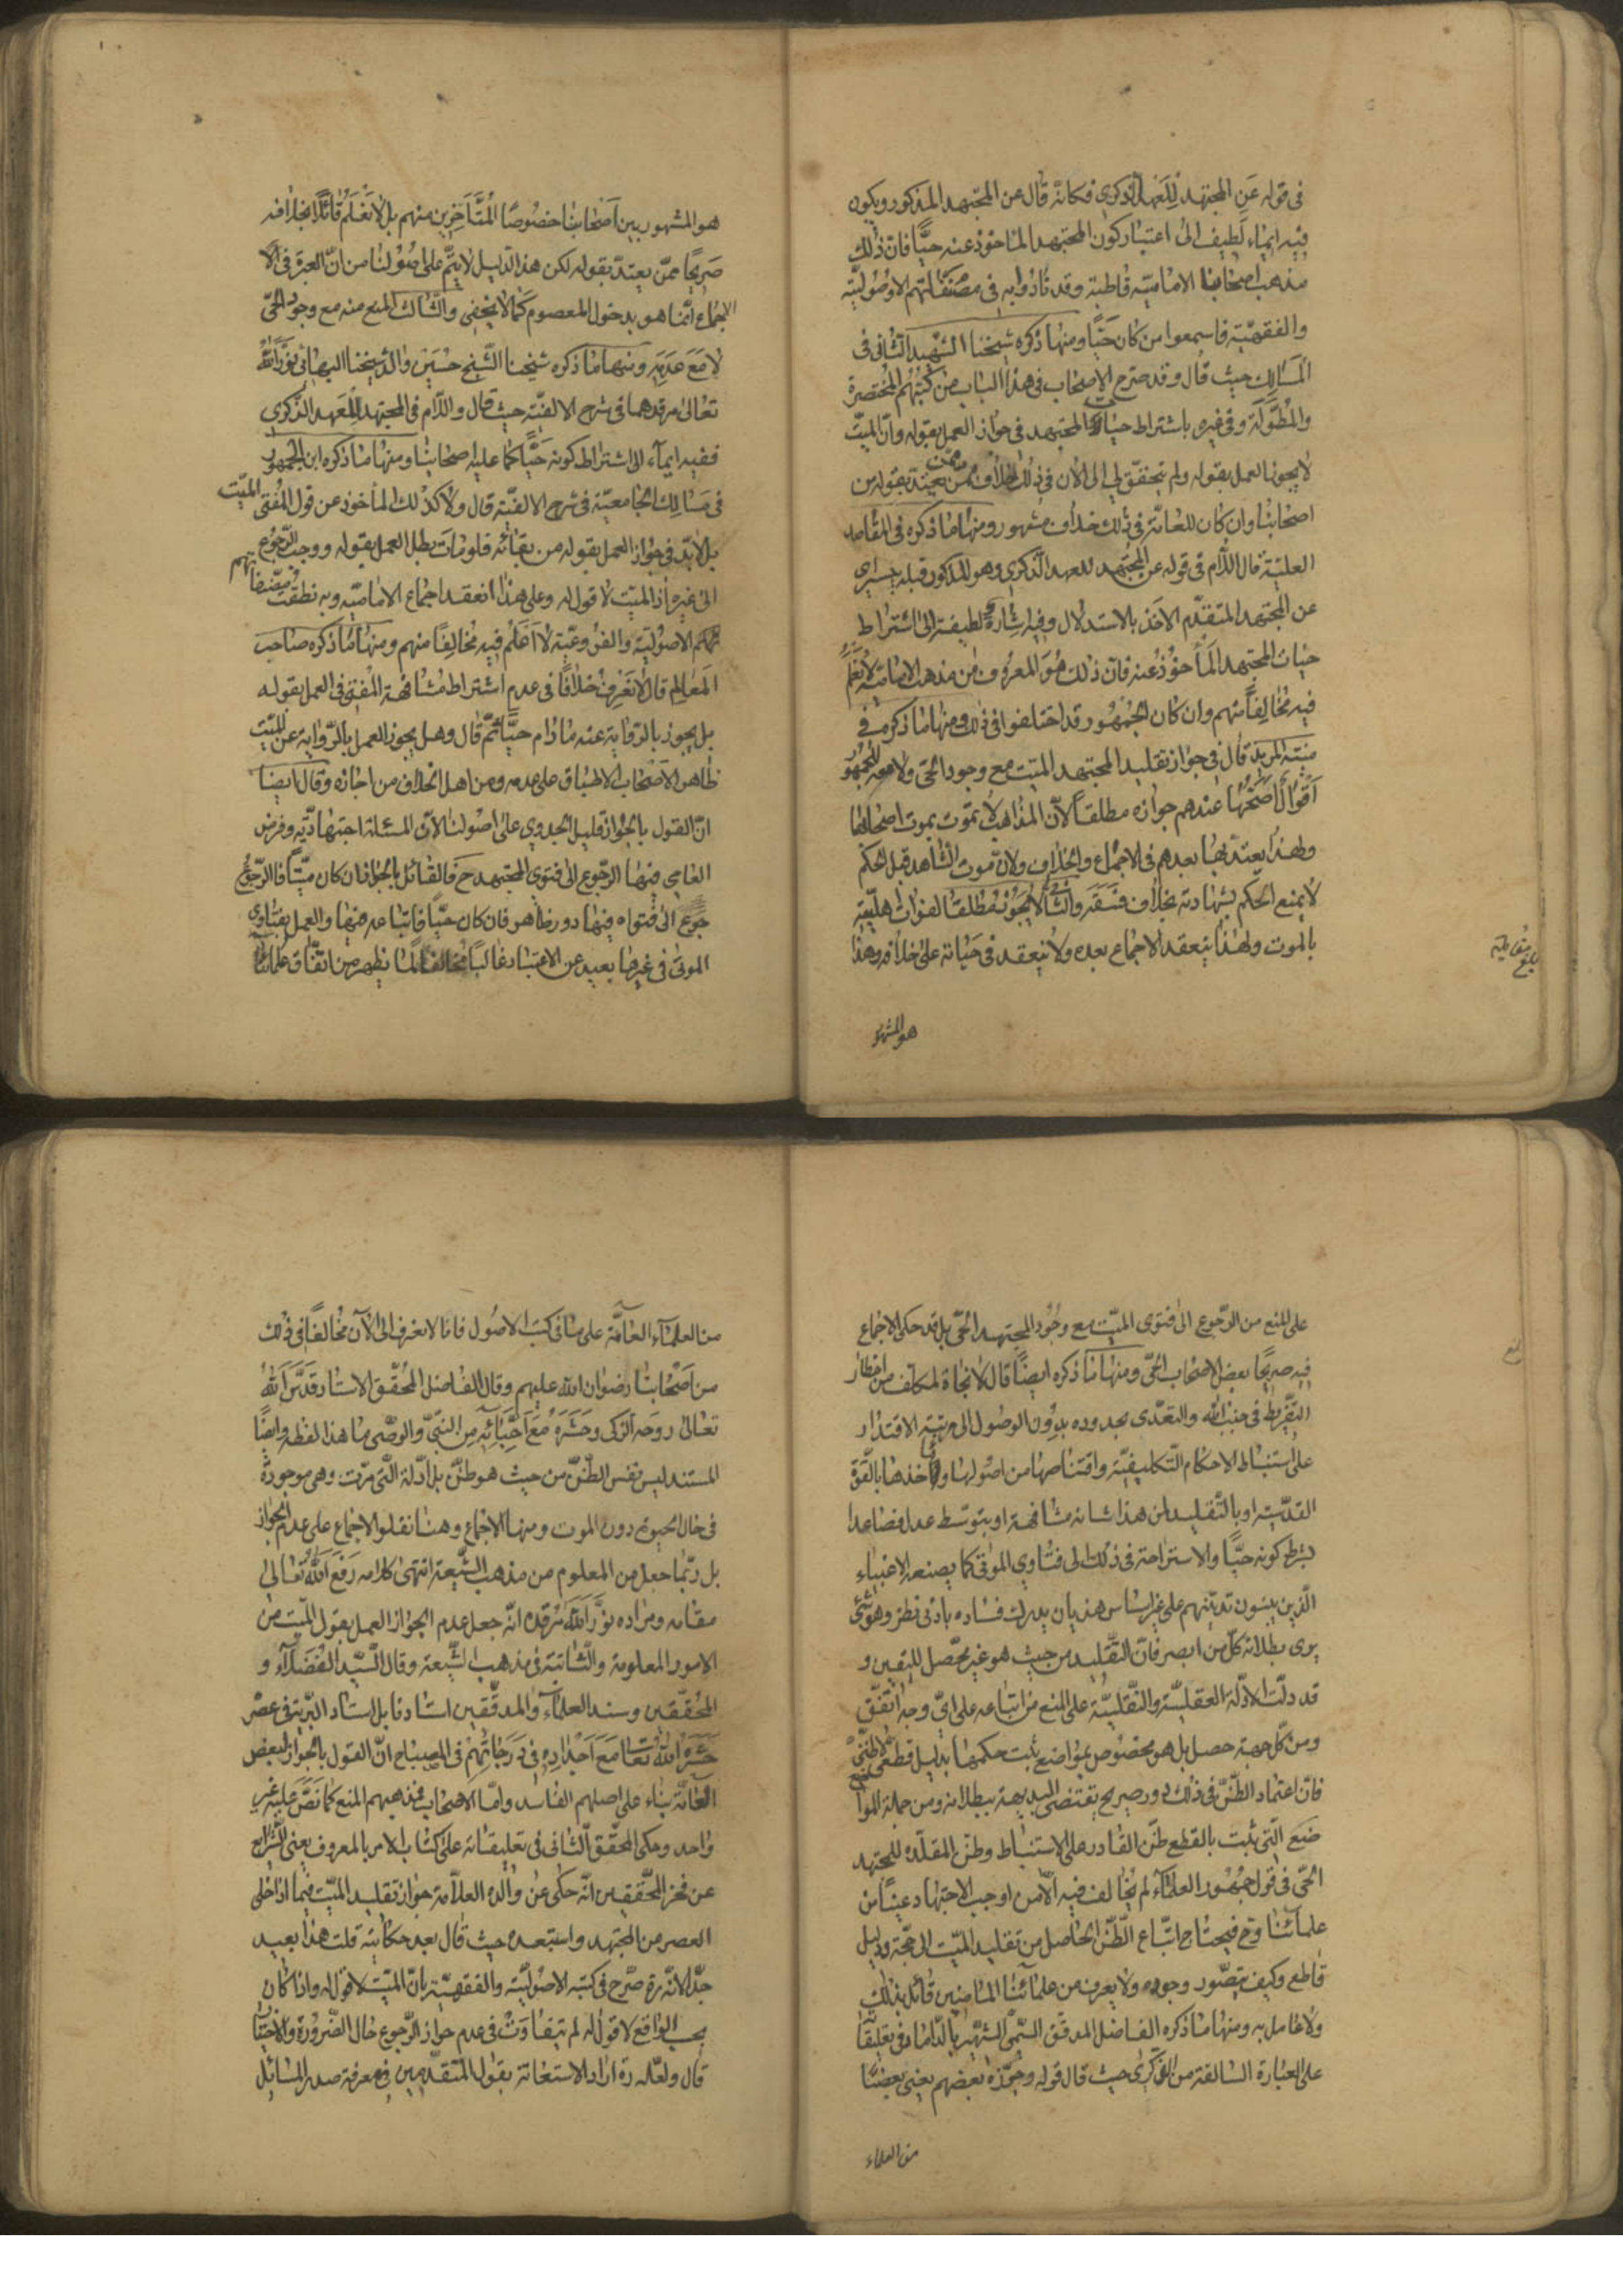 فى قوله عن المجتهد للعهد الذكرى فكانه قال عن المجتهد المذكور ويكون
فيه ايماء لطيف الى اعتبار كون المجتهد الماخوذ عنه حيّا فانّ ذلك
مذهب اصحابنا الاماميّه قاطبة وقد نادوا به فى مصنفاتهم الاوصوليّة
والفقهيّة فاسمعوا من كان حيّا ومنها ما ذكره شيخنا الشهيد الثانى فى
المسالك حيث قال وقد صرح الاصحاب فى هذا الباب من كتبهم المختصرة
والمطوّلة وفى غيره باشتراط حيات المجتهد فى جواز العمل بقوله وانّ الميّت
لا يجوز العمل بقوله ولم يتحقّق لى الى الان فى ذلك خلاف ممّن يعتدّ بقوله من
اصحابنا وان كان للعامّة فى ذلك خلاف مشهور ومنها ما ذكره فى المقاصد
العليّة قال اللّام فى قوله عن المجتهد للعهد الذكرى وهو المذكور قبله بيسير اى
عن المجتهد المتقدّم الاخذ بالاستدلال وفيه اشارة لطيفة الى اشتراط
حيات المجتهد المأخوذ عنه فانّ ذلك هو المعروف من مذهب الاماميّة لا نعلم
فيه مخالفا منهم وان كان الجمهور قد اختلفوا فى ذلك ومنها ما ذكره فى
منية المريد قال فى جواز تقليد المجتهد الميّت مع وجود الحىّ ولا معه للجمهور
اقوال اصحّها عندهم جوازه مطلقا لانّ المذاهب لا تموت بموت اصحابها
ولهذا يعتدّ بها بعدهم فى الاجماع والخلاف ولانّ موت الشاهد قبل الحكم
لا يمنع الحكم بشهادته بخلاف فسقه والثانى لا يجوز مطلقا لفوات اهليّته
بالموت ولهذا ينعقد الاجماع بعده ولا ينعقد فى حياته على خلافه وهذا
هو المشهور
هو المشهور بين اصحابنا خصوصا المتأخرين منهم بل لا نعلم قائلا بخلافه
صريحا ممّن يعتدّ بقوله لكن هذا الدليل لا يتمّ على اصولنا من انّ العبرة فى الا
الاجماع انّما هو بدخول المعصوم كما لا يخفى والثالث المنع منه مع وجود الحىّ
لا مع عدمه ومنها ما ذكره شيخنا الشيخ حسين والد شيخنا البهائى نوّر اللّه
تعالى مرقدهما فى شرح الالفيّة حيث قال واللّام فى المجتهد للعهد الذكرى
ففيه ايماء الى اشتراط كونه حيّا كما عليه اصحابنا ومنها ما ذكره ابن الجمهور
فى مسالك الجامعيّة فى شرح الالفيّة قال ولا كذلك المأخوذ عن قول المفتى الميّت
بل لابدّ فى جواز العمل بقوله من بقائه فلو مات بطل العمل بقوله ووجب الرّجوع
الى غيره اذ الميّت لا قول له وعلى هذا انعقد اجماع الاماميّه وبه نطقت مصنّفاتهم
الاصوليّة والفروعيّة لا اعلم فيه مخالفا منهم ومنها ما ذكره صاحب
المعالم قال لا نعرف خلافا فى عدم اشتراط مشافهة المفتى فى العمل بقوله
بل يجوز بالرّواية عنه ما دام حيّا ثمّ قال وهل يجوز العمل بالرّواية عن الميّت
ظاهر الاصحاب الاطباق على عدمه ومن اهل الخلاف من اجازه وقال ايضا
انّ القول بالجواز قليل الجدوى على اصولنا لانّ المسئلة اجتهاديّه وفرض
العامى فيها الرّجوع الى فتوى المجتهد ح فالقائل بالجواز ان كان ميّتا فالرّجوع
جوع الى فتواه فيها دور ظاهر وان كان حيّا فاتّباعه فيها والعمل بفتاوى
الموتى فى غيرها بعيد عن الاعتبار غالبا مخالف لما يظهر من اتّفاق علمائنا
على المنع من الرّجوع الى فتوى الميّت مع وجود المجتهد الحىّ بل قد حكى الاجماع
فيه صريحا بعض الاصحاب الحىّ ومنها ما ذكره ايضا قال لا نجاة لمكلّف من اخطار
التفريط فى جنب اللّه والتعدّى بحدوده بدون الوصول الى مرتبة الاقتدار
على استنباط الاحكام التكليفيّة واقتناصها من اصولها وماخذها بالقوّة
القدّسيّة او بالتّقليد لمن هذا شانه مشافهة او بتوسّط عدل فصاعدا
بشرط كونه حيّا والاستراحة فى ذلك الى فتاوى الموتى كما يصنعه الاغبياء
الّذين يبنون تديّنهم على غير اساس هذيان يدرك فساده بادنى نظر وهو شئ
يرى بطلانه كلّ من ابصر فانّ التّقليد من حيث هو غير محصّل لليقين و
قد دلّت الادلّة العقليّة والنّقليّة على المنع من اتباعه على اىّ وجه اتّفق
ومن كلّ جهة حصل بل هو مخصوص بمواضع ثبت حكمها بدليل قطعى لا ظنّى
فانّ اعتماد الظّنّ فى ذلك دور صريح يقتضى البديهة ببطلانه ومن جملة الموا
ضع الّتى ثبت بالقطع ظنّ القادر على الاستنباط وظنّ المقلّد للمجتهد
الحىّ فى قول جمهور العلماء لم يخالف فيه الّا من اوجب الاجتهاد عينا من
علمائنا وح فيحتاج اتّباع الظّنّ الحاصل من تقليد الميّت الى حجّة ودليل
قاطع وكيف يتصّور وجوده ولا يعرف من علمائنا الماضين قائل بذلك
ولا عامل به ومنها ما ذكره الفاضل المدقّق السّمىّ الشهير بالدّاماد فى تعليقا
على العبارة السّالفة من الذكرى حيث قال قوله وجوّزه بعضهم يعنى بعضا
من العلماء
من العلماء العامّة على ما فى كتب الاصول فانا لا نعرف الى الآن مخالفا فى ذلك
من اصحابنا رضوان اللّه عليهم وقال الفاضل المحقّق الاستاد قدّس اللّه
تعالى روحه الزكى وحشره مع احبّائه من النبىّ والوصّى ما هذا لفظه وايضا
المستند ليس نفس الظّنّ من حيث هو ظنّ بل ادّلة الّتى مرّت وهى موجودة
فى حال الحيوة دون الموت ومنها الاجماع وهنا نقلوا الاجماع على عدم الجواز
بل ربّما جعل من المعلوم من مذهب الشّيعة انتهى كلامه رفع اللّه تعالى
مقامه ومراده نوّر اللّه مرقده انّه جعل عدم الجواز العمل بقول الميّت من
الامور المعلومة والثّابتة فى مذهب الشّيعة وقال السّيّد الفضلاء و
المحقّقين وسند العلماء والمدقّقين استادنا بل استاد البريّة فى عصر
حشره اللّه تعا مع اجداده فى درجاتهم فى المصباح انّ القول بالجواز لبعض
العامّة بناء على اصلهم الفاسد وامّا الاصحاب فمذهبهم المنع كما نصّ عليه غير
واحد وحكى المحقّق الثانى فى تعليقاته على كتاب الامر بالمعروف يعنى الشرايع
عن فخر المحقّقين انّه حكى عن والده العلّامة جواز تقليد الميّت فيما اذا خلى
العصر من المجتهد واستبعده حيث قال بعد حكايته قلت هذا بعيد
جدّا لانّه ره صرّح فى كتبه الاصوليّة والفقهيّة بانّ الميّت لا قول له واذا كان
بحسب الواقع لا قول له لم يتفاوت فى عدم جواز الرّجوع حال الضّرورة والاختيا
قال ولعلّه ره اراد الاستعانة بقول المتقدّمين فى معرفة صدر المسائل